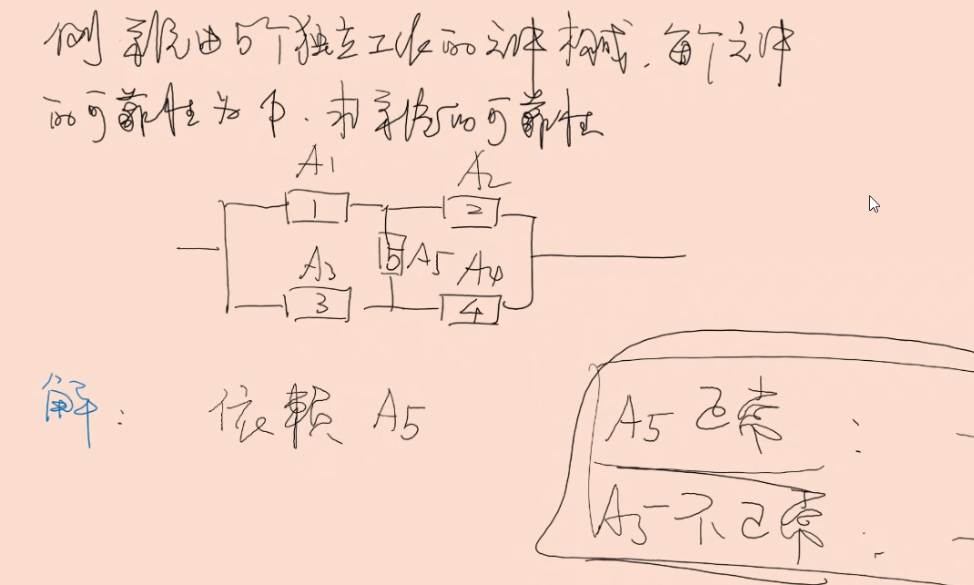 例 系统由5个独立工作的元件构成.每个元件
的可靠性为p.求系统的可靠性
A1 A2
1 2
5 A5
A3 A4
3 4
解: 依赖 A5
A5 正常:
A5 不正常: